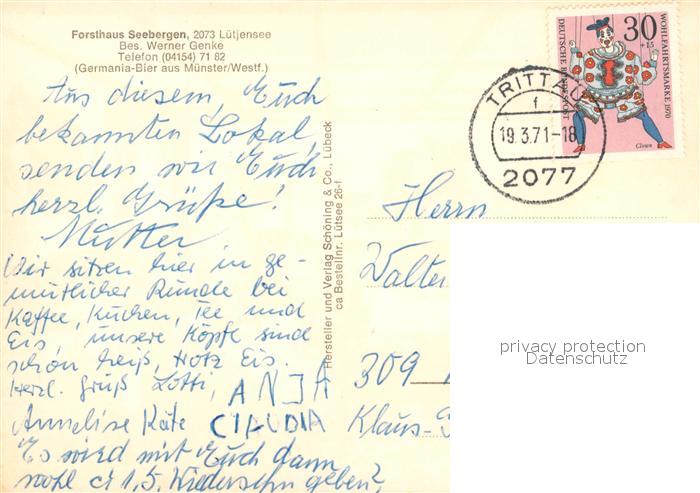 Forsthaus Seebergen, 2073 Lütjensee
Bes. Werner Genke
Telefon (04154) 71 82
(Germania-Bier aus Münster/Westf.)
Aus diesem, Euch
bekannten Lokal,
senden wir Euch
herzl. Grüße!
Mutter
Wir sitzen hier in ge-
mütlicher Runde bei
Kaffee, Kuchen, Tee und
Eis, unsere Köpfe sind
schön heiß, trotz Eis.
Herzl. Gruß Lotti, ANJA
Annelise Käte CLAUDIA
Es wird mit Euch dann
wohl 1.5. Wiedersehn geben?
Hersteller und Verlag Schöning & Co., Lübeck
ca Bestellnr. Lütsee 26-f
30
+15
WOHLFAHRTSMARKE 1970
DEUTSCHE BUNDESPOST
Clown
TRITTAU
f
19.3.71-18
2077
Herrn
Walter
309
Klaus-
privacy protection
Datenschutz